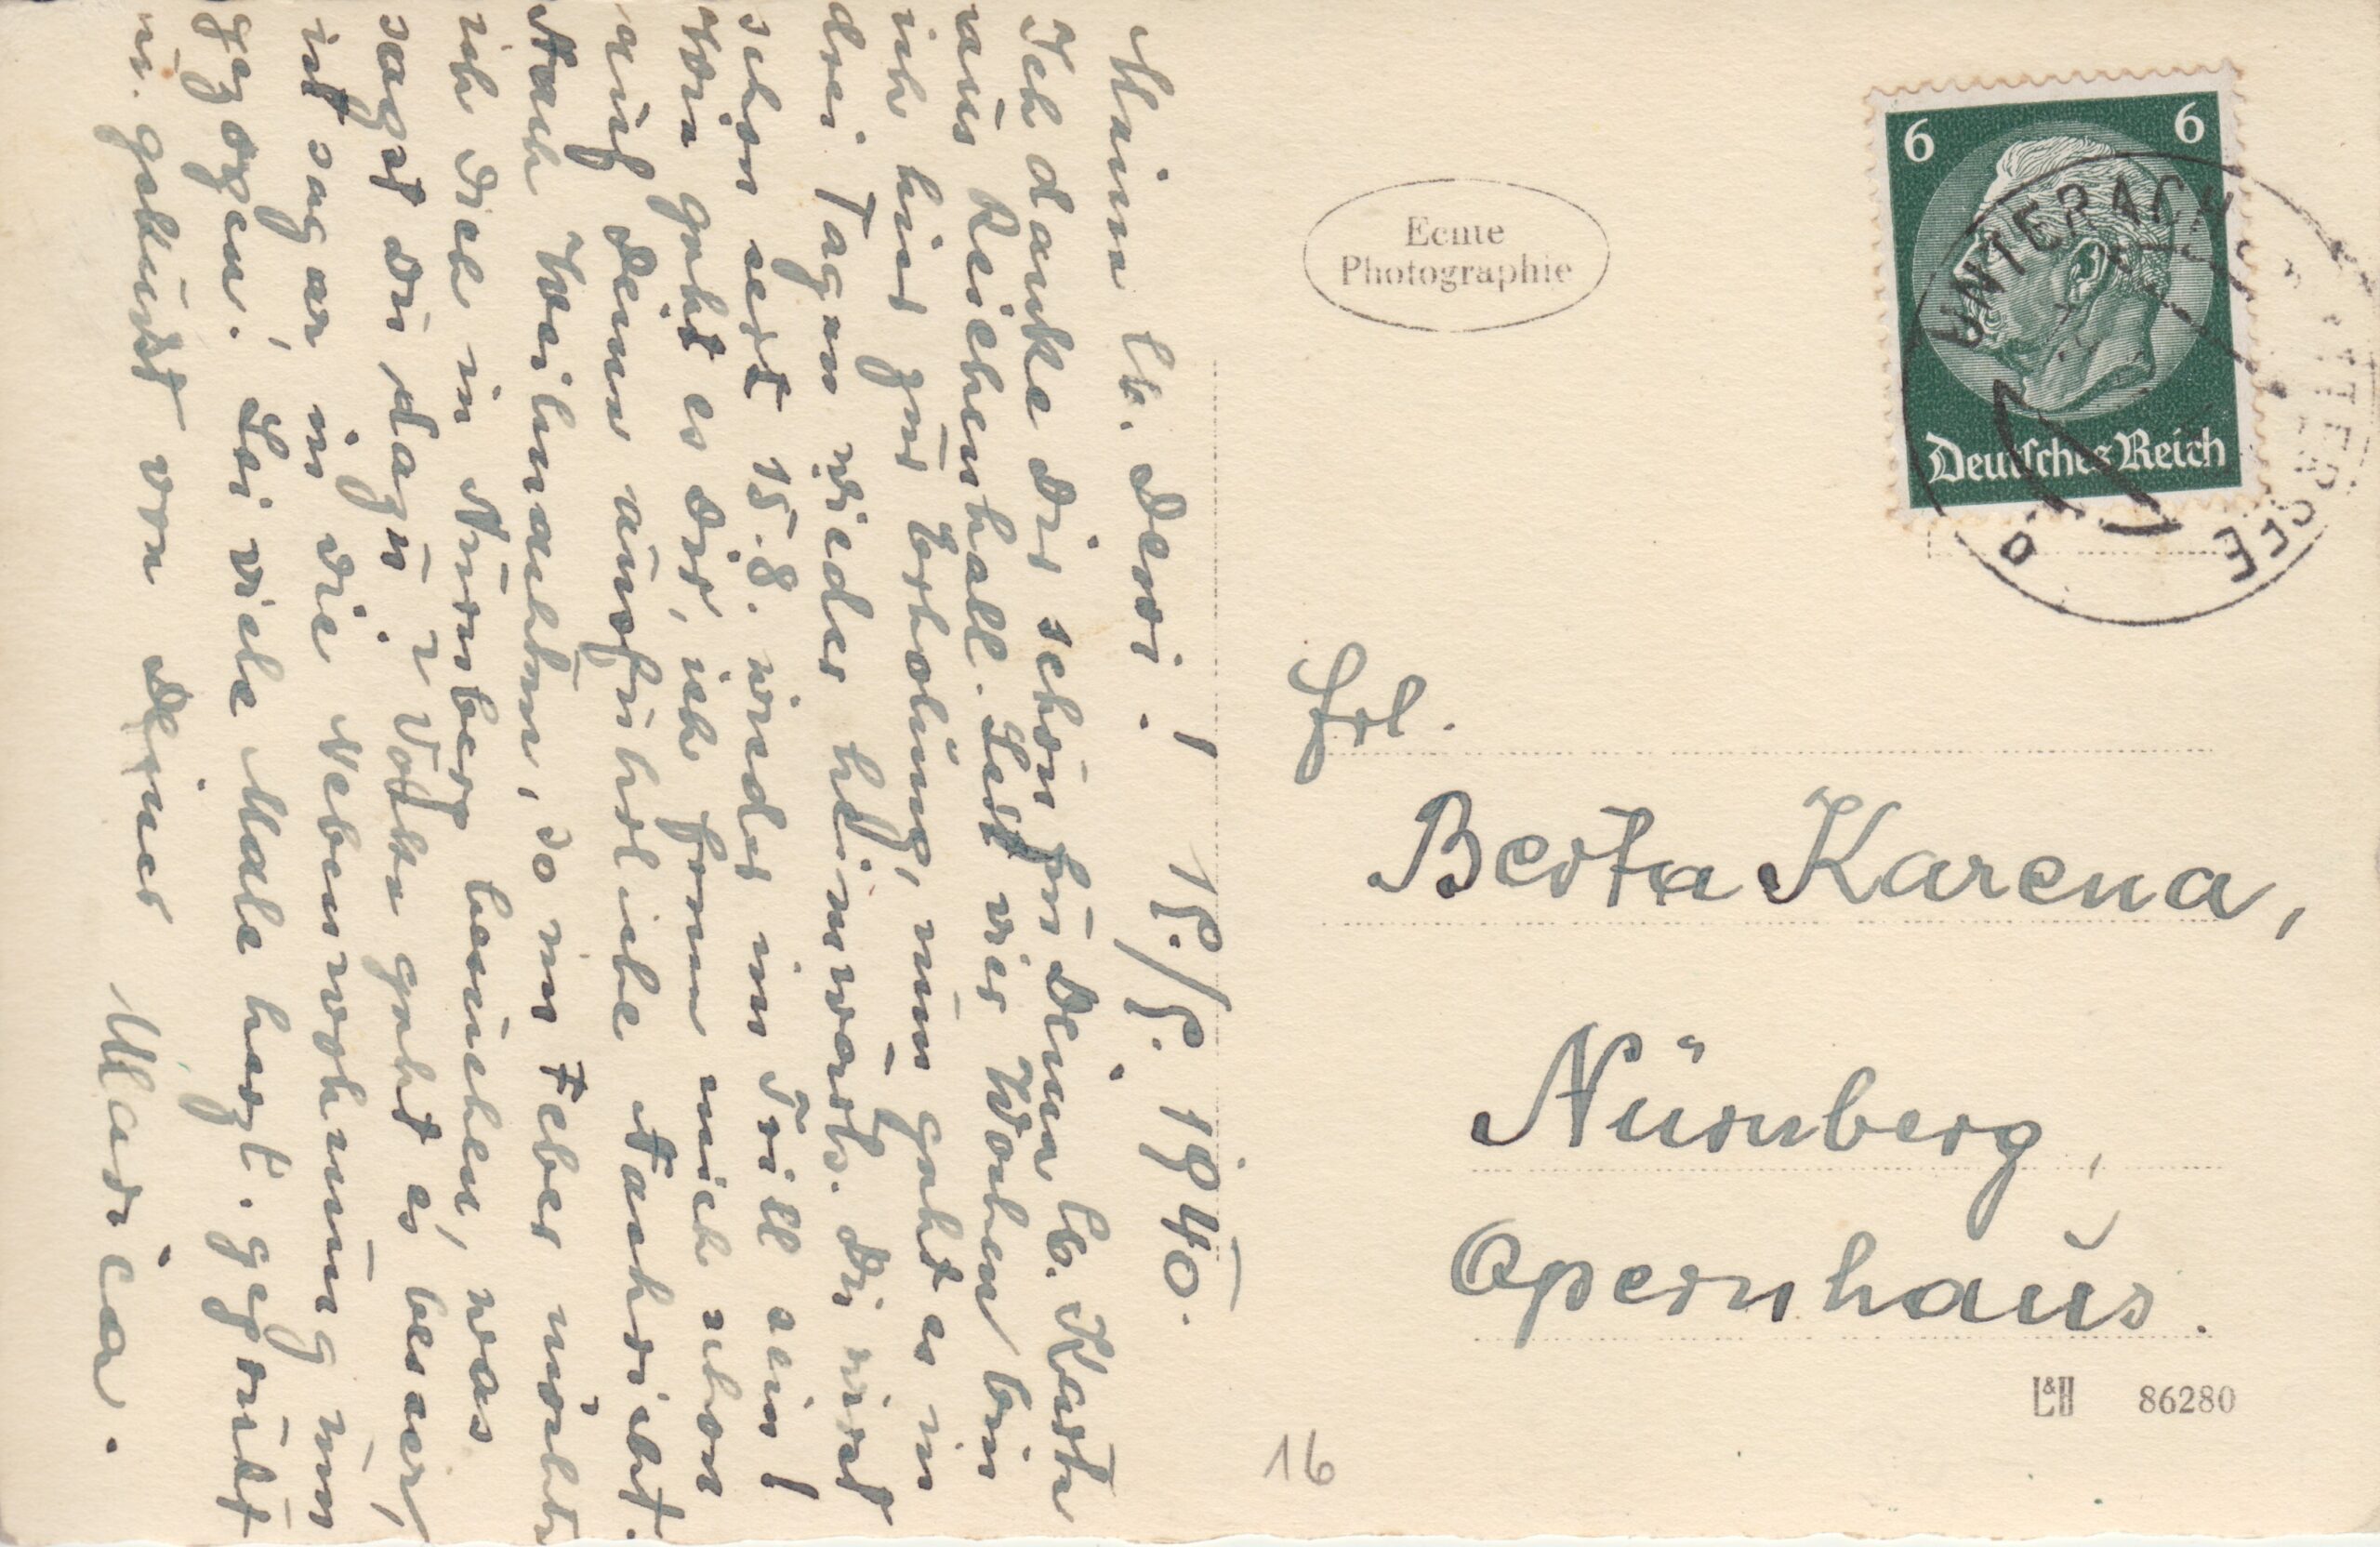 Meine lb. Deri! 19./9. 1940.
Ich danke dir schön für deine lb. Karte
aus Reichenhall. Seit vier Wochen bin
ich hier zur Erholung, nun geht es in
drei Tagen wieder heimwärts. Du wirst
schon seit 15.8. wieder im Drill sein!
Wie geht es dir, ich freue mich schon
auf deine ausführliche Nachricht.
Nach Weihnachten, so im Feber möchte
ich dich in Nürnberg besuchen, was
sagst du dazu? Vater geht es besser,
ist sogar in die Nebenwohnung nun
gezogen. Sei viele Male herzl. gegrüßt
u. geküsst von deiner Marica.
Echte
Photographie
6 6
Deutsches Reich
UNTERACH
ATTERSEE
Frl.
Berta Karena,
Nürnberg,
Opernhaus.
L&H 86280
16